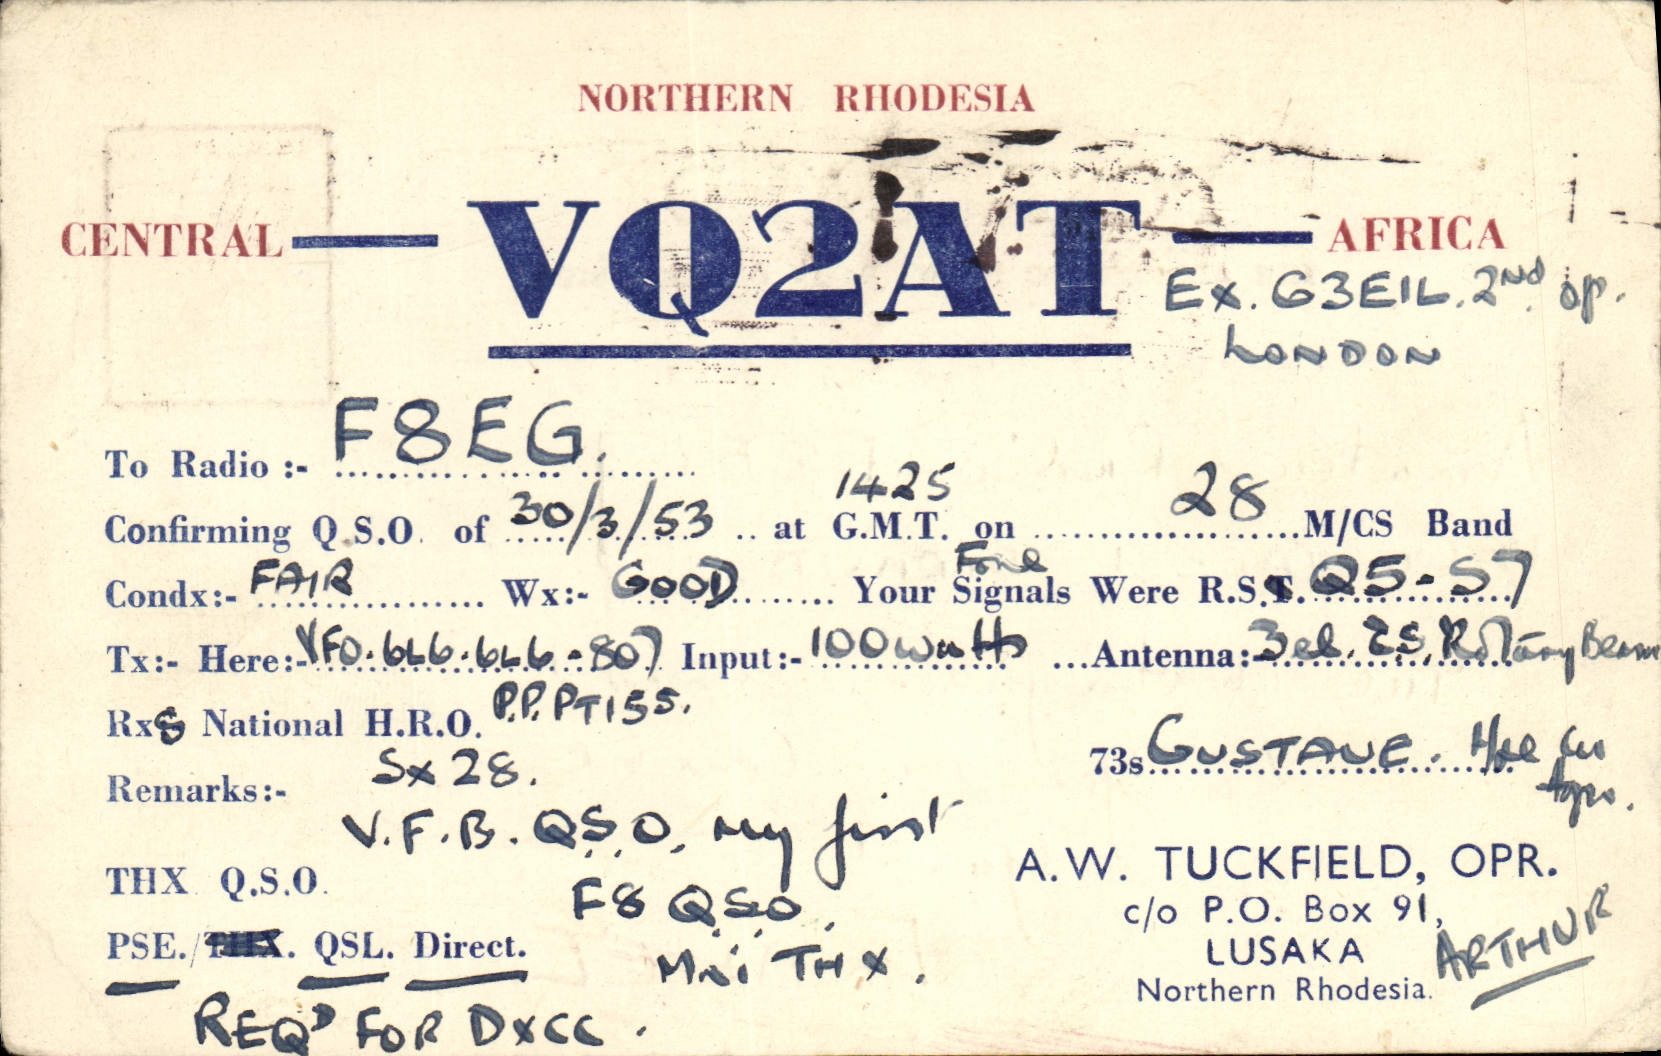 NORTHERN RHODESIA
CENTRAL — VQ2AT — AFRICA
Ex. G3EIL. 2ND op.
LONDON
To Radio :- F8EG.
Confirming Q.S.O. of 30/3/53 at 1425 G.M.T. on 28 M/CS Band
Condx:- FAIR Wx:- GOOD Your Fone Signals Were R.S.T. Q5-S7
Tx:- Here:- VFO.6L6.6L6-807 Input:- 100watts Antenna:- 3el. C.S. Rotary Beam
P.P.PT155.
RxS National H.R.O.
Sx28.
73s GUSTAVE. Hpe cu agn.
Remarks:-
V.F.B. QSO, my first
THX Q.S.O. F8 QSO.
PSE./THX. QSL. Direct. Mni THX.
REQD FOR DXCC.
A.W. TUCKFIELD, OPR.
c/o P.O. Box 91,
LUSAKA
Northern Rhodesia.
ARTHUR